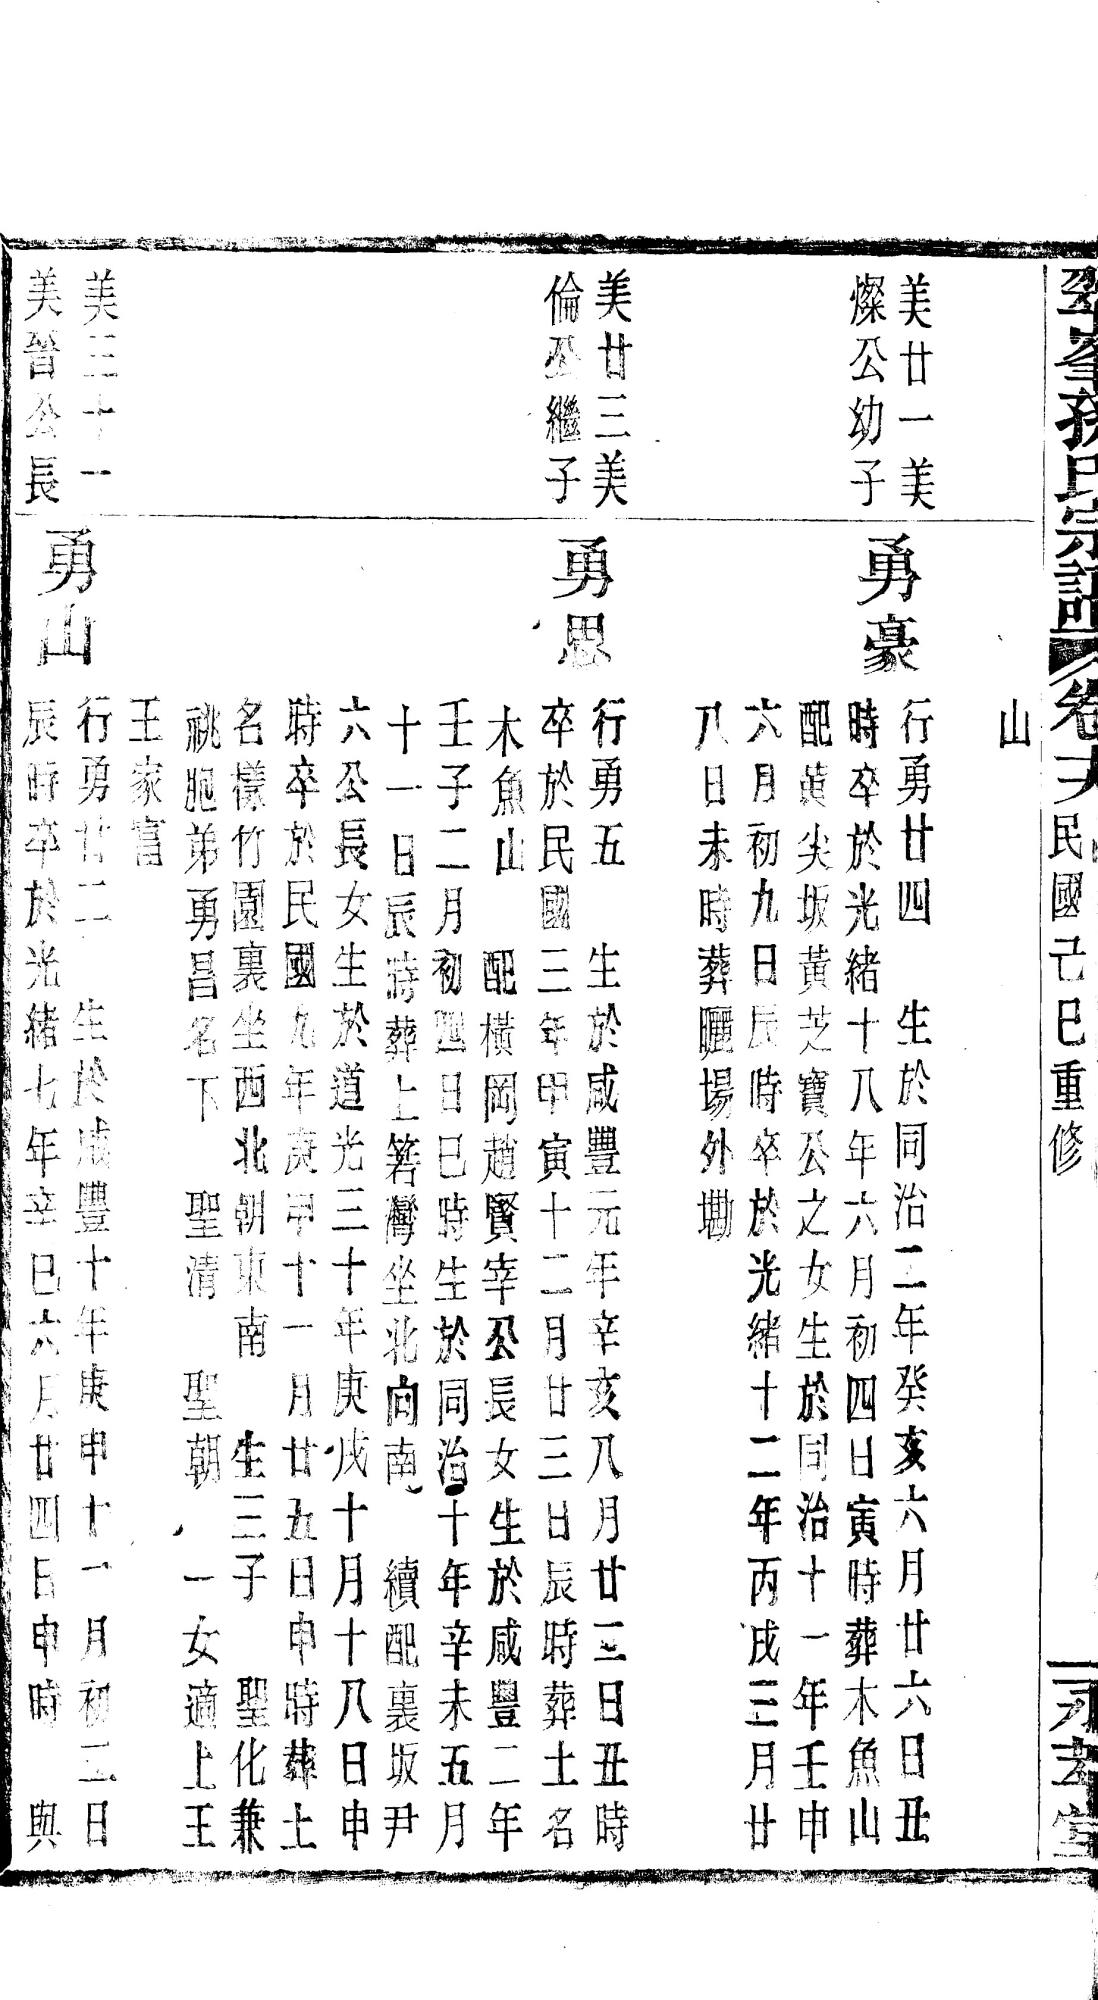 孫氏宗譜 卷十六 民國己巳重修
山
美廿一美
燦公幼子
勇豪
行勇廿四 生於同治二年癸亥六月廿六日丑
時卒於光緒十八年六月初四日寅時葬木魚山
配黃尖坂黃芝寶公之女生於同治十一年壬申
六月初九日辰時卒於光緒十二年丙戌三月廿
八日未時葬曬場外塝
美廿三美
倫公繼子
勇思
行勇五 生於咸豐元年辛亥八月廿三日丑時
卒於民國三年甲寅十二月廿三日辰時葬土名
木魚山 配橫岡趙賢宰公長女生於咸豐二年
壬子二月初四日巳時生於同治十年辛未五月
十一日辰時葬上箬灣坐北向南 續配裏坂尹
六公長女生於道光三十年庚戌十月十八日申
時卒於民國九年庚申十一月廿五日申時葬土
名樣竹園裏坐西北朝東南 生三子 聖化兼
祧胞弟勇昌名下 聖清 聖朝 一女適上王
王家富
美三十一
美晉公長
勇山
行勇廿二 生於咸豐十年庚申十一月初二日
辰時卒於光緒七年辛巳六月廿四日申時 與